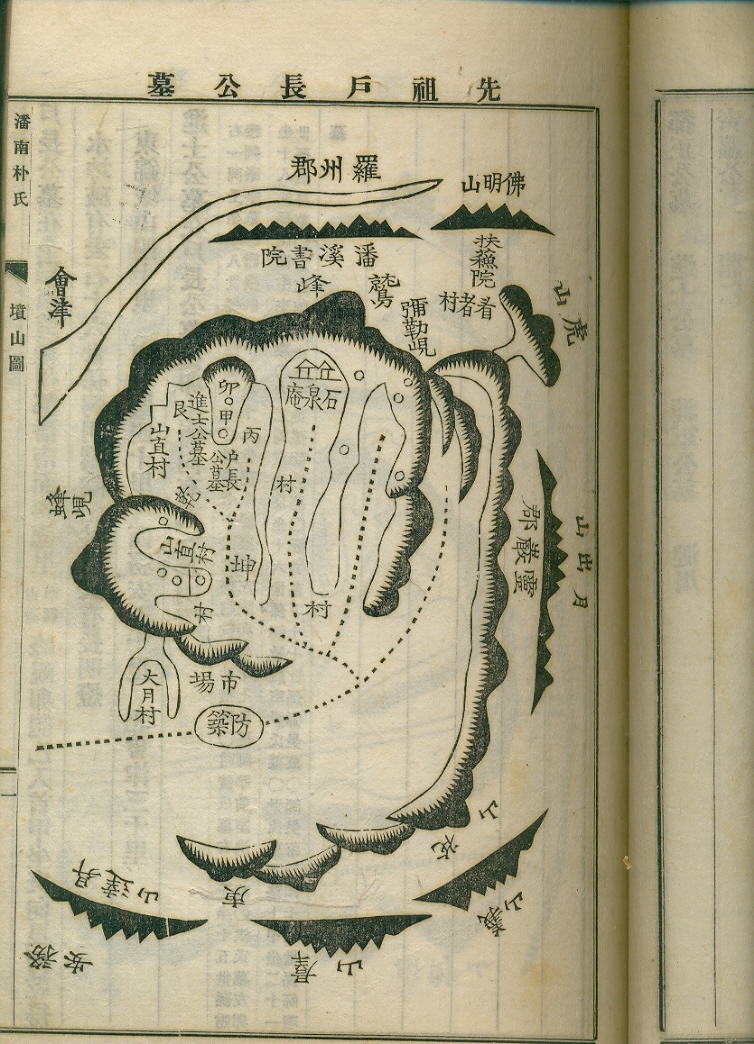 先祖戶長公墓
潘南朴氏
墳山圖
羅州郡
佛明山
潘溪書院
扶蘇院
看者村
虎山
鷲峰
彌勒峴
會津
石泉庵
卯
甲
艮
進士公墓
丙
戶長公墓
山直村
乾
村
蜂峴
山直村
坤
村
村
靈巖郡
月出山
大月村
市場
防築
山
丹達山
山